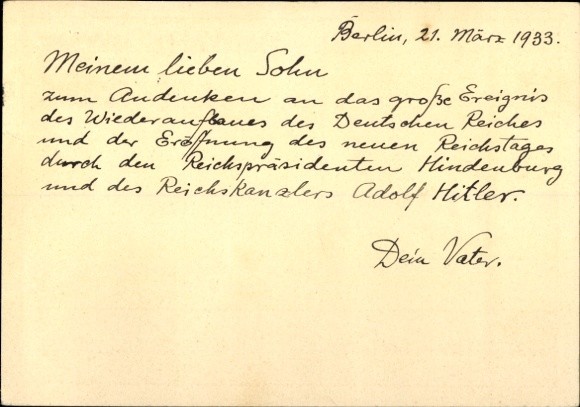 Berlin, 21. März 1933.
Meinem lieben Sohn
zum Andenken an das große Ereignis
des Wiederaufbaues des Deutschen Reiches
und der Eröffnung des neuen Reichstages
durch den Reichspräsidenten Hindenburg
und des Reichskanzlers Adolf Hitler.
Dein Vater.